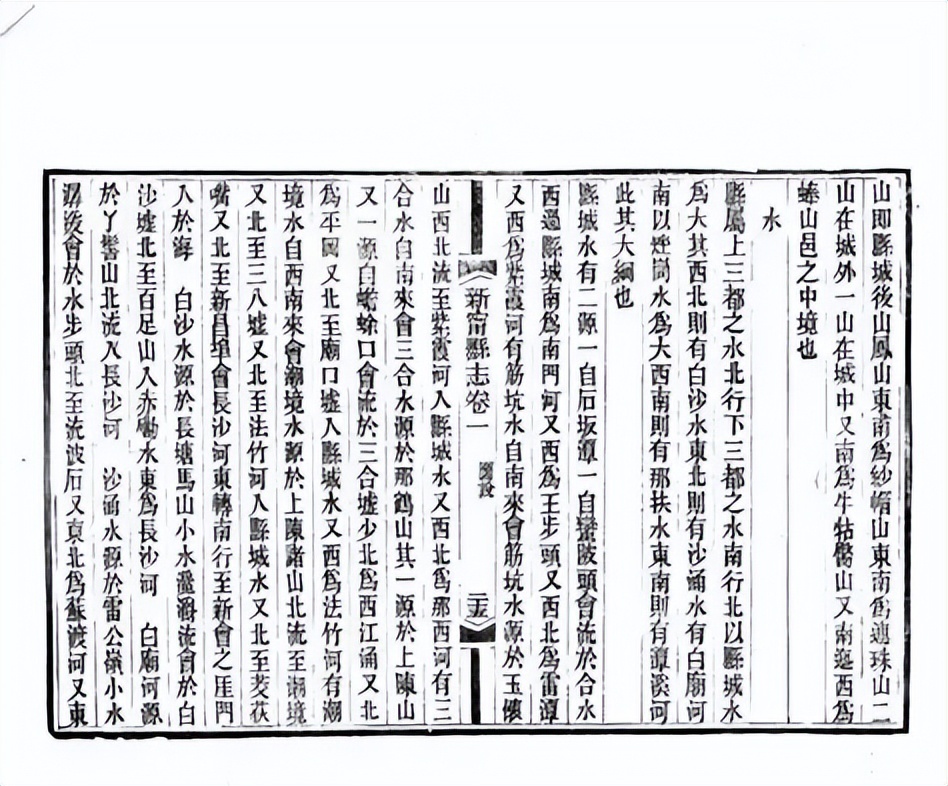 山即縣城後山鳳山東南爲紗帽山東南爲連珠山二
山在城外一山在城中又南爲牛牯山又南迤西爲
山邑之中境也
水
縣屬上三都之水北行下三都之水南行北以縣城水
爲大其西北則有白沙水東北則有沙涌水有白廟河
南以烽崗水爲大西南則有那扶水東南則有潭溪河
此其大綱也
縣城水有二源一自石坂潭一自陂頭會流於合水
西過縣城南爲南門河又西爲王步頭又西北爲雷潭
又西爲紫霞河有筋坑水自南來會筋坑水源於玉懷
新甯縣志卷一 圖說 二五
山西北流至紫霞河入縣城水又西北爲那西河有三
合水自南來會三合水源於那鶴山其一源於上陳山
又一源自口會流於三合墟少北爲西江涌又北
爲平岡又北至廟口墟入縣城水又西爲法竹河有潮
境水自西南來會潮境水源於上陳諸山北流至潮境
又北至三八墟又北至法竹河入縣城水又北至茭荻
嘴又北至新昌埠會長沙河東轉南行至新會之厓門
入於海 白沙水源於長塘馬山小水流會於白
沙墟北至百足山入赤磡水東爲長沙河 白廟河源
於丫髻山北流入長沙河 沙涌水源於雷公嶺小水
後會於水步頭北至流波石又東北爲蘇渡河又東